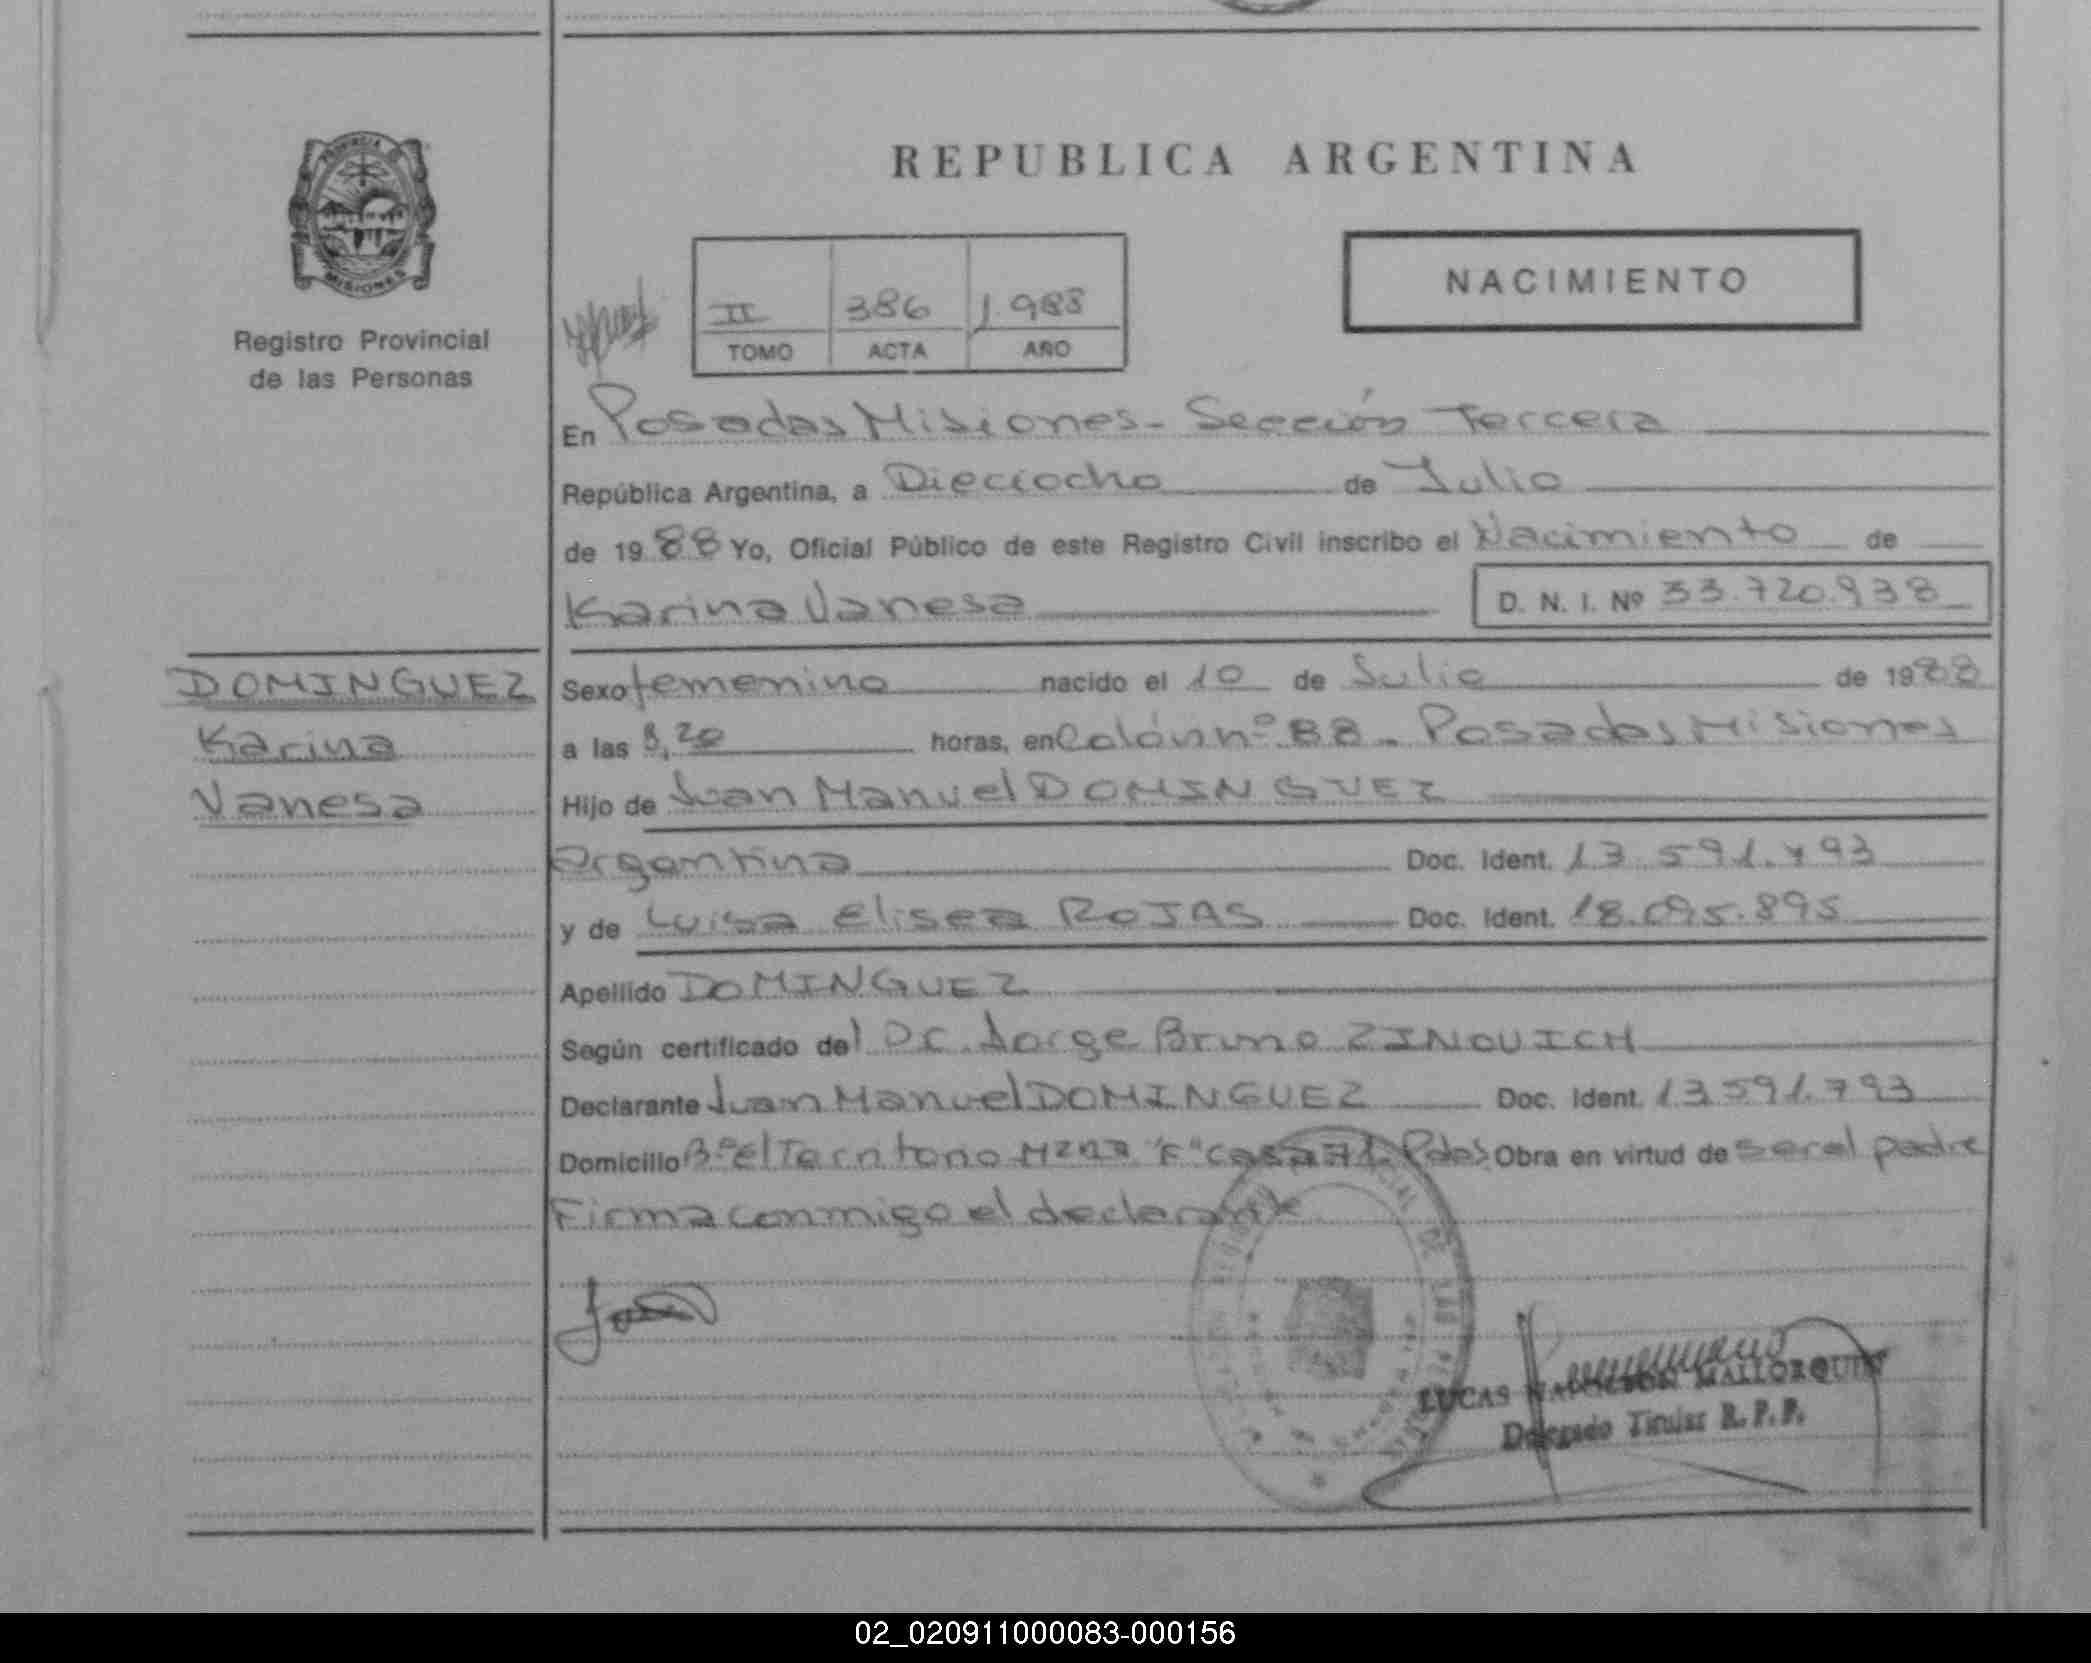 PROVINCIA DE
MISIONES
Registro Provincial
de las Personas
REPUBLICA ARGENTINA
NACIMIENTO
II 386 1.988
TOMO ACTA AÑO
En Posadas Misiones - Sección Tercera
República Argentina, a Dieciocho de Julio
de 1988 Yo, Oficial Público de este Registro Civil inscribo el Nacimiento de
Karina Vanesa D. N. I. Nº 33.720.938
DOMINGUEZ
Karina
Vanesa
Sexo femenino nacido el 10 de Julio de 1988
a las 8,20 horas, en Colón nº 88 - Posadas Misiones
Hijo de Juan Manuel DOMINGUEZ
argentina Doc. Ident. 13.591.793
y de Luisa Elisea ROJAS Doc. Ident. 18.095.895
Apellido DOMINGUEZ
Según certificado del DC. Jorge Bruno ZINOVICH
Declarante Juan Manuel DOMINGUEZ Doc. Ident. 13.591.793
Domicilio Bº el Territorio Mzna "F" casa 71. Pdas Obra en virtud de ser el padre
Firma conmigo el declarante
LUCAS MALLORQUIN
Delegado Titular R.P.P.
02_020911000083-000156